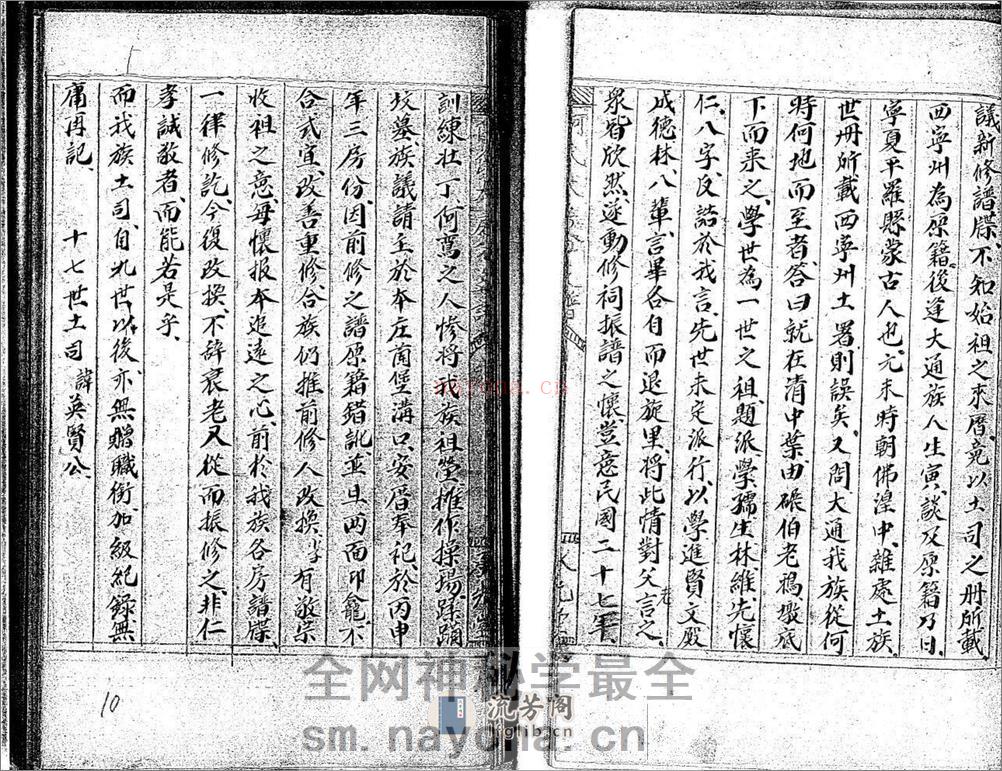 議新修譜牒不知始祖之來曆竟以土司之册所載
西寧州為原籍後逢大通族人生寅談及原籍乃曰
寧夏平羅縣蒙古人也元末時朝佛湟中雜處土族
世册所載西寧州土署則誤矣又問大通我族從何
時何地而至者答曰就在清中葉由碾伯老鴉墩底
下而来之學世為一世之祖題派學孺生林維先懷
仁八字反詰於我言先世未定派行以學進賢文殿
成德林八輩言畢各自而退旋里將此情對父老言之
衆皆欣然遂動修祠振譜之懷豈意民國二十七年
訓練壯丁何焉之人慘將我族祖塋摧作操場蹂躪
坟墓族議請主於本庄南堡溝口安厝奉祀於丙申
年三房份因前修之譜原籍錯訛並且兩面印龕不
合式宜改善重修合族仍推前修人改換字有敬宗
收祖之意每懷报本追遠之心前於我族各房譜牒
一律修訖今復改換不辞衰老又從而振修之非仁
孝誠敬者而能若是乎
而我族土司自九世以後亦無贈職銜加級紀録無
庸再記 十七世土司 諱英賢公
10
全网神秘学最全
流芳阁
lfglib.cn
sm.nayona.cn
nayona.cn